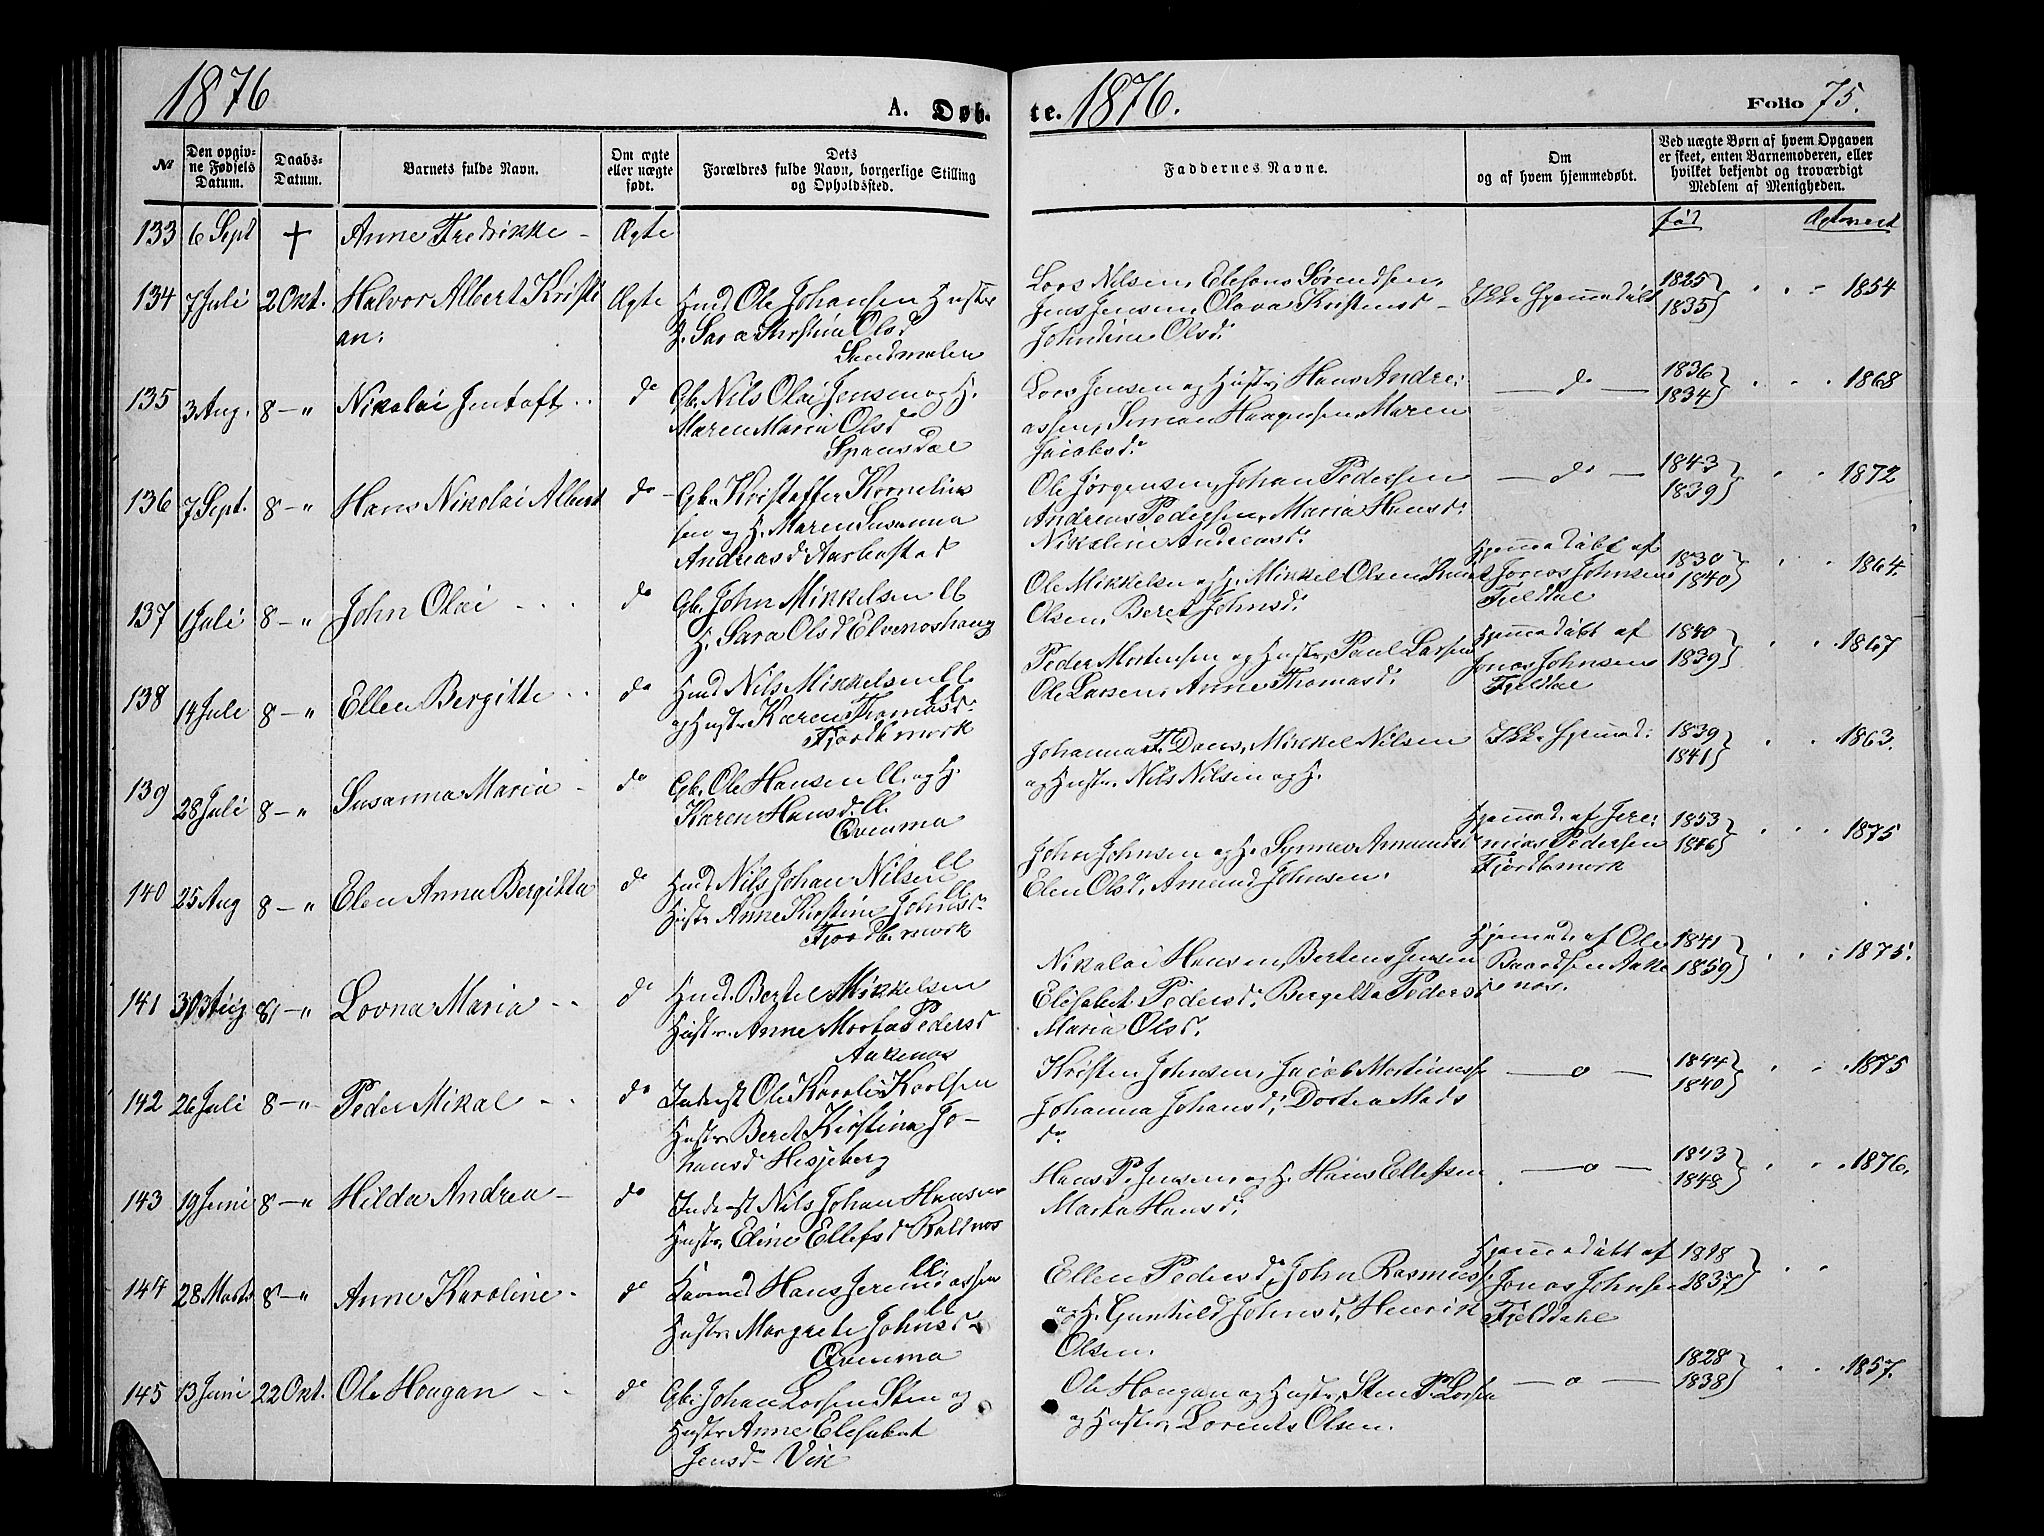 1876
A. Døb-
te. 1876.
Folio 75.
No
Den opgiv-
ne Fødsels
Datum.
Daabs-
Datum.
Barnets fulde Navn.
Om ægte
eller uægte
født.
Dets
Forældres fulde Navn, borgerlige Stilling
og Opholdssted.
Faddernes Navne.
Om
og af hvem hjemmedøbt.
Ved uægte Børn af hvem Opgaven
er skeet, enten Barnemoderen, eller
hvilket bekjendt og troværdigt
Medlem af Menigheden.
133 6 Sept † Anne Fredrikke - Ægte
134 7 Juli 2 Okt. Halvor Albert Kristi
an.
Ægte
Hmd Ole Johansen Huster
Sara Kirstina Olsd
Lars Nilsen,
Jens Jensen, Olava Kristensd
Olsd.
Ikke hjemmedøbt
1825
1835
1854
135 3 Aug. 8 - " Nikolai Jentoft ..
do
Gb. Nils Olai Jensen og H.
Maren Maria Olsd
Spansdal
Lars Jensen og Hustr, Hans Andre-
assen, Maren
Jacobsd.
- do -
1836
1834
1868
136 7 Sept. 8 - " Hans Nikolai Albert
do
Gb. Kristoffer Kornelius
sen og H. Maren Susanna
Andreasd
Ole Jørgensen, Johan Pedersen
Andreas Pedersen, Maria Hansd.
Nikoline Andreasd.
- do -
1843
1839
1872
137 1 Juli 8 - " John Olai
do
Gb. John Mikkelsen ll
H. Sara Olsd Elvenæshaug
Ole Mikkelsen og H. Mikkel Olsen
Olsen, Beret Johnsd.
Hjemmedøbt af
Jonas Johnsen
Fjeldal
1830
1840
1864.
138 14 Juli 8 - " Ellen Bergitte ..
do
Hmd Nils Mikkelsen ll
og Hustr Karen Thomasd. ll
Fjordbmark
Peder Mortensen og Hustr, Paul Larsen
Ole Larsen, Anne Thomasd.
Hjemmedøbt af
Jonas Johnsen
Fjeldal
1840
1839
1867
139 28 Juli 8 - " Susanna Maria
do
Gb. Ole Hansen ll. og H.
Karen Hansd. ll.
Qvenmo
Mikkel Nilsen
og Hustr. Nils Nilsen og H.
Ikke Hjemmed.
1839
1841
1863.
140 25 Aug 8 - " Elen Anna Bergitta
do
Hmd. Nils Johan Nilsen ll
Hustr Anne Kirstine Johnsd. ll
Fjordb. mark
John Johnsen og H. Synnev Amundsd
Elen Olsd, Amund Johnsen.
Hjemmed. af Jere-
mias Pedersen
Fjordbmark
1853
1846
1875
141 8 - " Lovna Maria ..
do
Hmd. Berhtel Mikkelsen
Hustr. Anne Marta Pedersd
Aakenæs
Nikolai Hansen, Bertens Jensen
Elisabet Pedersd. Bergitta Pedersd
Maria Olsd.
Hjemmed. af Ole
Baardsen Aake
næs.
1841
1859
1875.
142 26 Juli 8 - " Peder Mikal ..
do
Inderst Ole Karoli Karlsen
Hustr. Beret Kirstina Jo-
hansd Hesjeberg
Kristen Johnsen, Jacob Martinuss
Johanna Johansd, Dortea Mads
do
- o -
1844
1840
1875
143 19 Juni 8 - " Hilda Andrea -
do
Inderst Nils Johan Hansen
Hustr. Eline Ellefsd
Hans P. Jensen og H. Hans Ellefsen
Marta Hansd.
- o -
1843
1848
1876.
144 28 Marts 8 - " Anne Karoline .
do
Hans Jeremiassen ll.
Hustr. Margrete Johnsd ll
Qvenmo
Ellen Pedersd, John Rasmuss.
og H. Gunhild Johnsd, Henrik
Olsen.
Hjemmedøbt af
Jonas Johnsen
Fjelddahl
1837
145 13 Juni 22 Okt. Ole Hougan ..
do
Gb. Johan Larsen Sten og
Hustr Anne Elisabet
Jensd Vik
Ole Hougan og Hustr, Sten P. Larsen
og Hustr, Lorents Olsen.
- o -
1828
1838
1857.